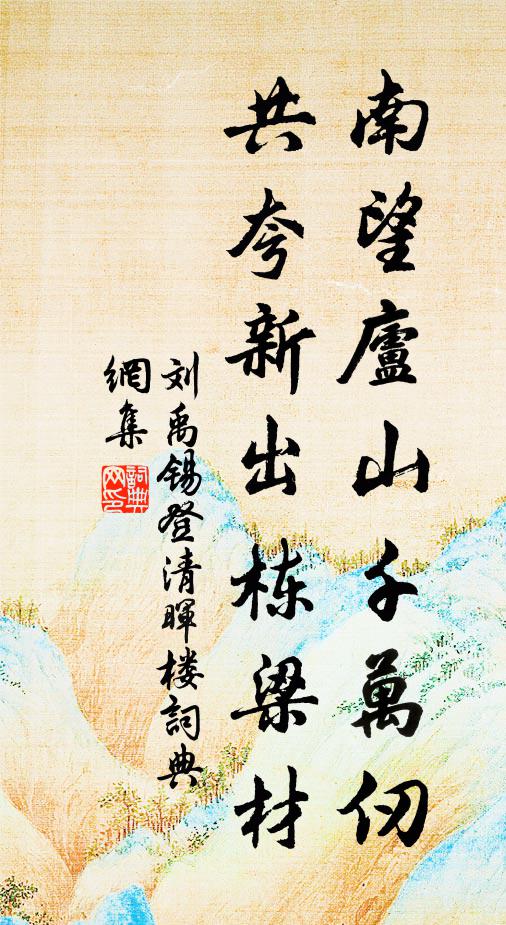 南望廬山千萬仞
共夸新出栋梁材
刘禹锡登清暉楼詞典
網集
詞典